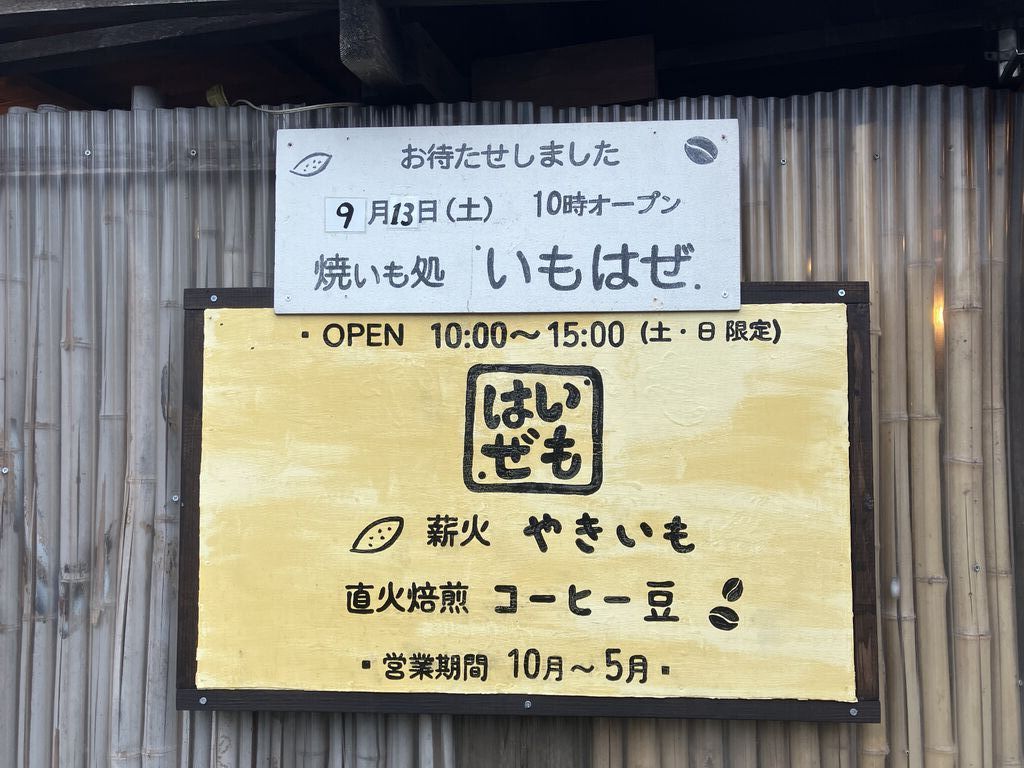 お待たせしました
9月13日(土) 10時オープン
焼いも処 いもはぜ
・OPEN 10:00〜15:00 (土・日 限定)
いも
はぜ
薪火 やきいも
直火焙煎 コーヒー豆
・営業期間 10月〜5月・